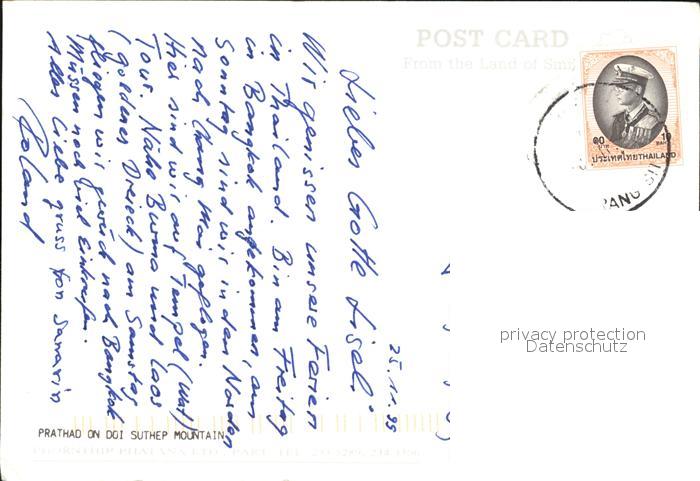 POST CARD
From the Land of Smi
๑๐ บาท
10 BAHT
ประเทศไทย THAILAND
RANG SIT
25.11.95
Liebes Gotte Liseli
Wir geniessen unsere Ferien
in Thailand. Bin am Freitag
in Bangkok angekommen, am
Sonntag sind wir in den Norden
nach Chang Mai geflogen.
Hier sind wir auf Tempel (Wat)
Tour. Nähe Burma und Laos
(goldenes Dreieck) am Samstag
fliegen wir zurück nach Bangkok
Müssen noch viel Einkaufen.
Alles Liebe gruss von
Roland
PRATHAD ON DOI SUTHEP MOUNTAIN
PHORNTHIP PHATANA LTD., PART. TEL.
privacy protection
Datenschutz